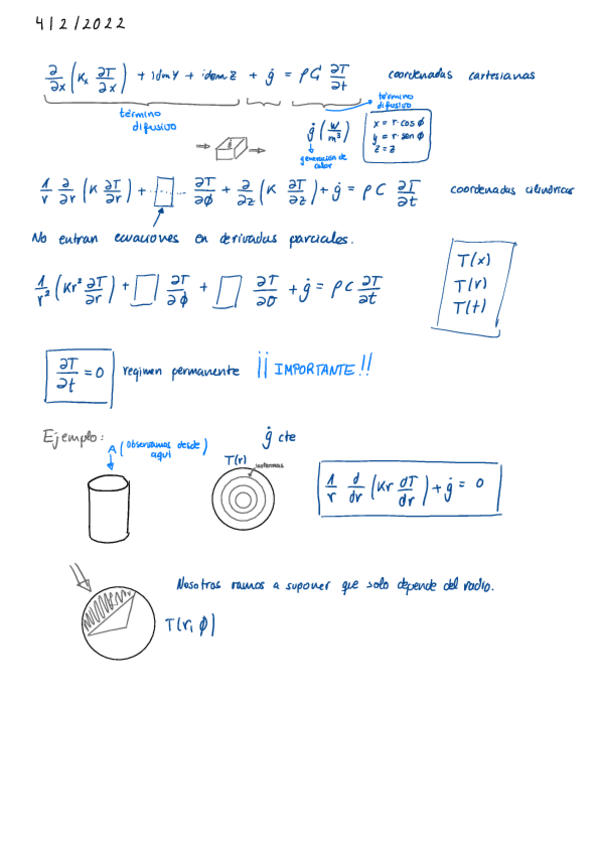 4/2/2022
∂/∂x (Kx ∂T/∂x) + idm Y + idem Z + ġ = ρC ∂T/∂t coordenadas cartesianas
término difusivo
término difusivo
ġ (W/m³)
generación de calor
x = r·cos ϕ
y = r·sen ϕ
z = z
1/r ∂/∂r (K ∂T/∂r) + ... ∂T/∂ϕ + ∂/∂z (K ∂T/∂z) + ġ = ρC ∂T/∂t coordenadas cilíndricas
No entran ecuaciones en derivadas parciales.
1/r² (Kr² ∂T/∂r) + ∂T/∂ϕ + ∂T/∂σ + ġ = ρC ∂T/∂t
T(x)
T(r)
T(t)
∂T/∂t = 0 regimen permanente ¡¡IMPORTANTE!!
Ejemplo:
A (observamos desde aquí)
ġ cte
T(r)
isotermas
1/r d/dr (Kr dT/dr) + ġ = 0
Nosotros vamos a suponer que solo depende del radio.
T(r, ϕ)